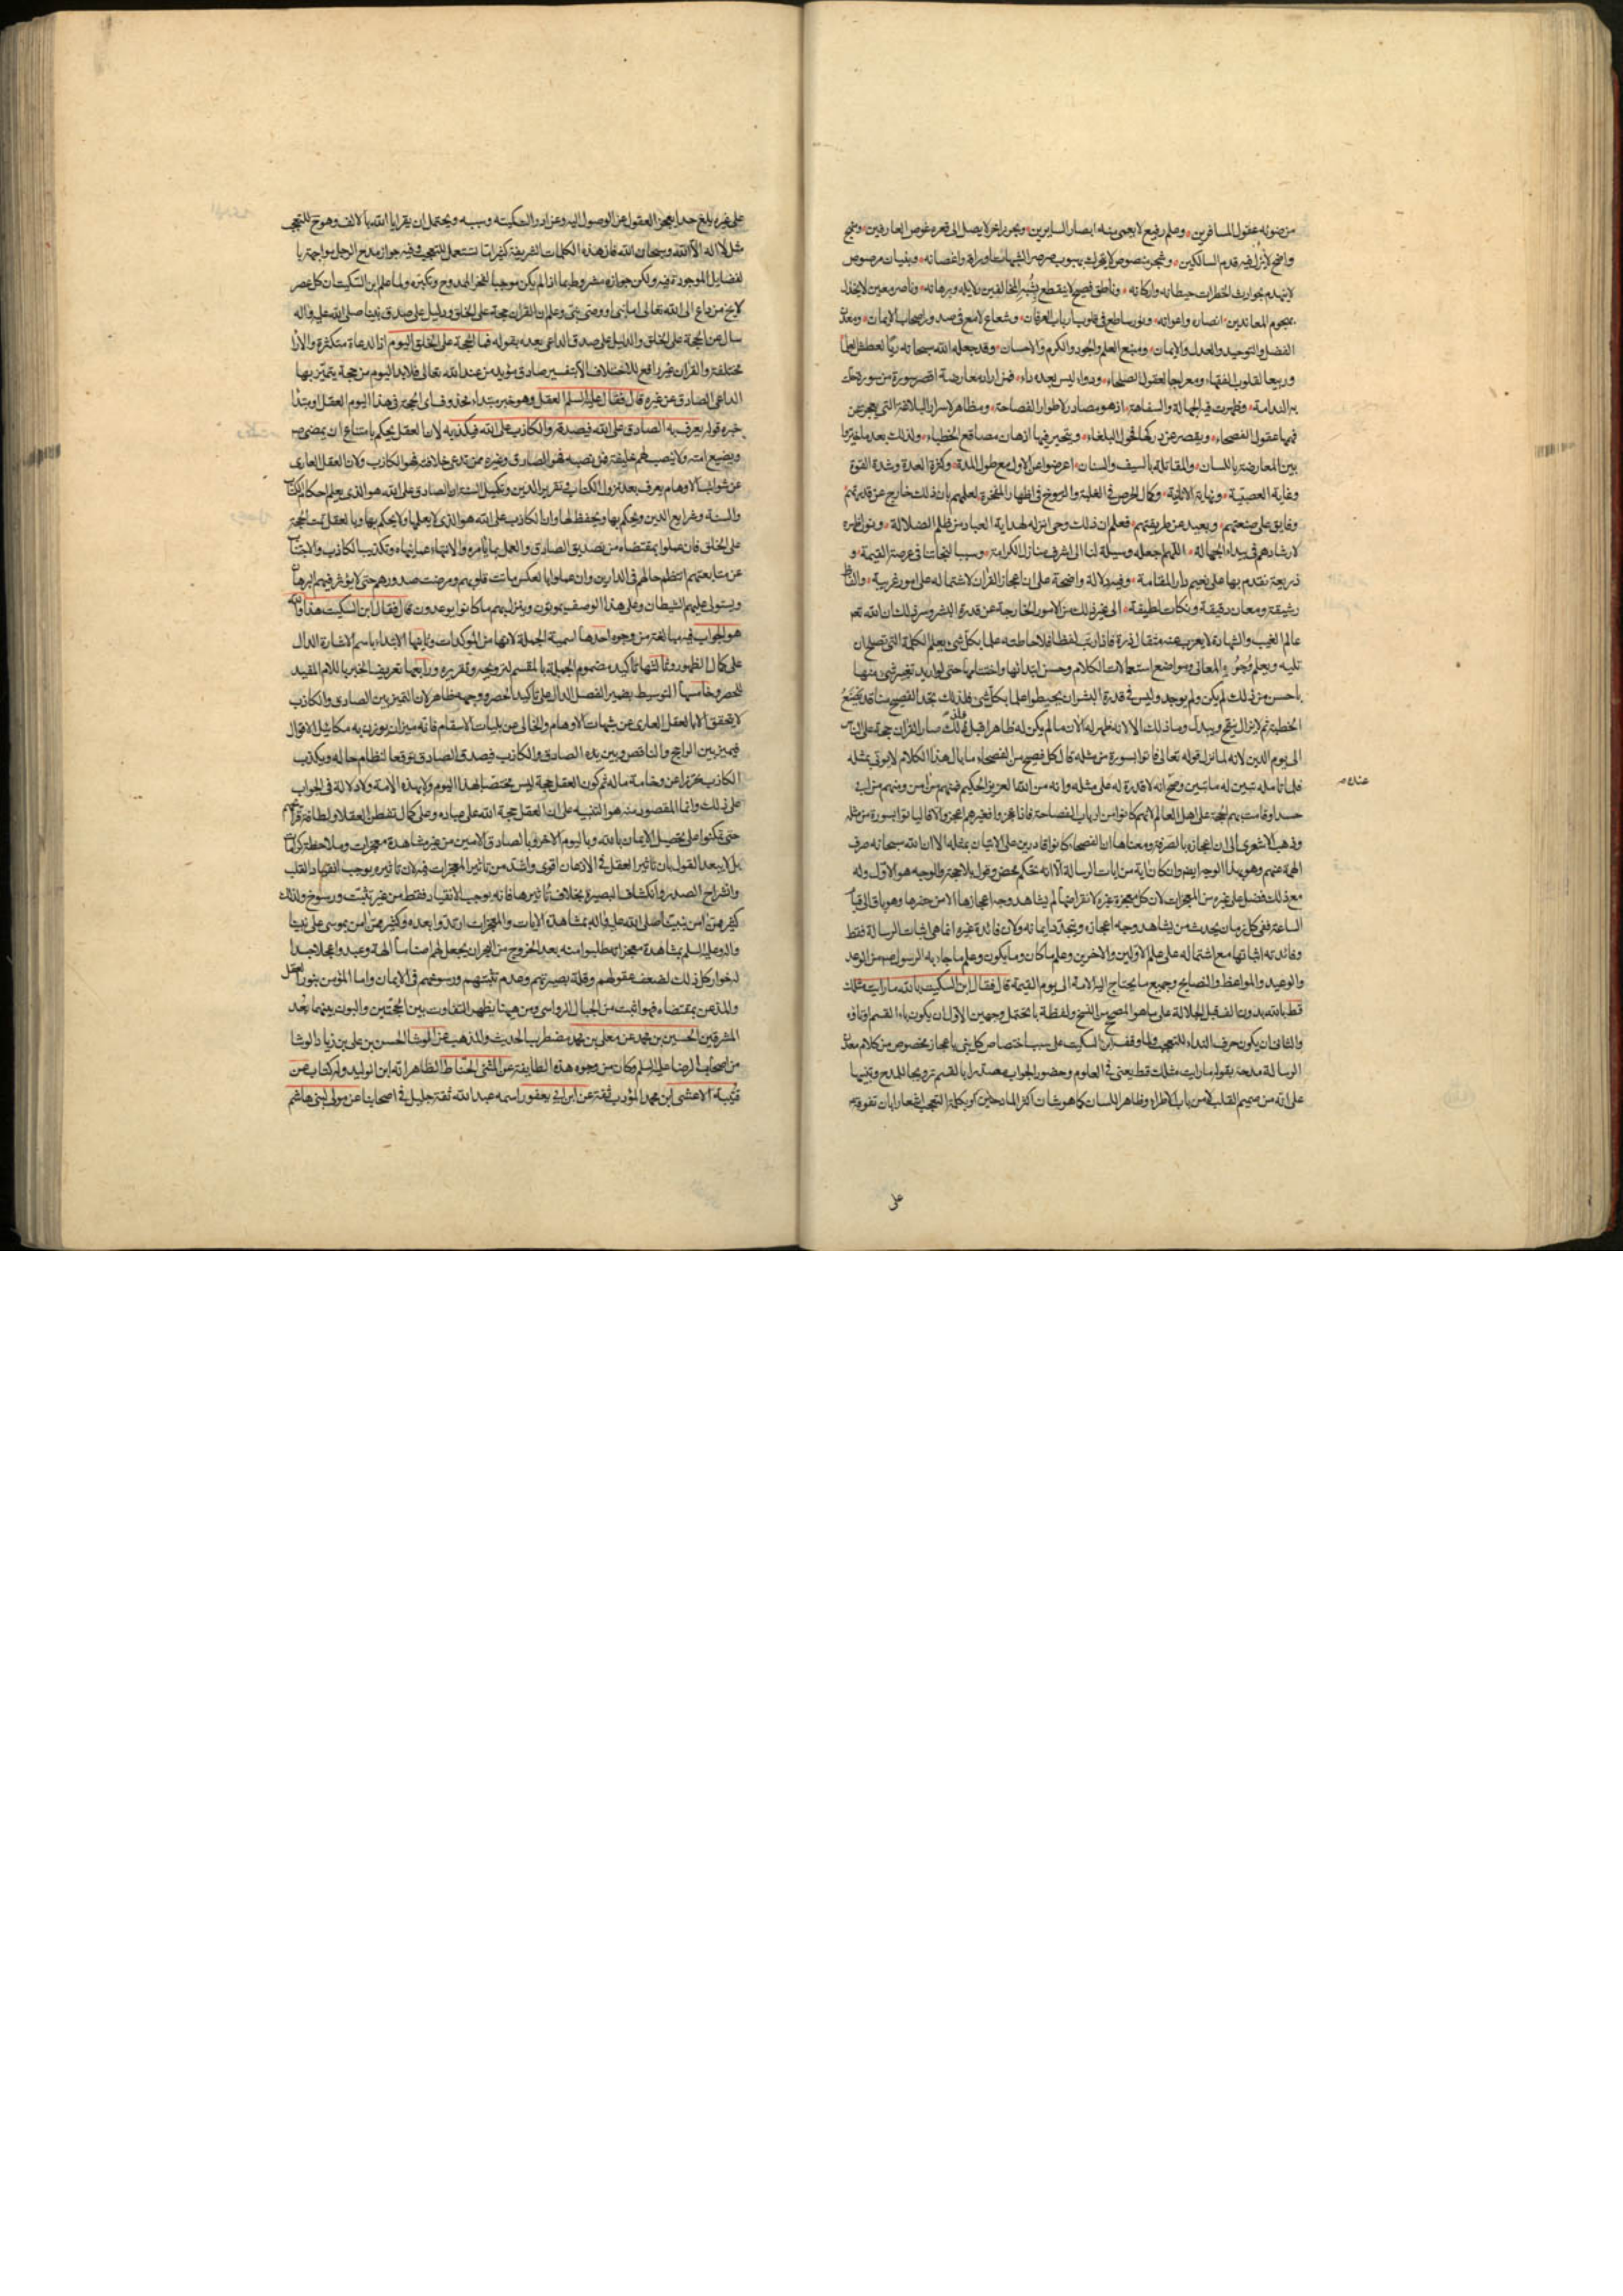 من صونه عقول المسافرين وعلم رفيع لا يعمى عنه ابصار السايرين وبحر زاخر لا يصل الى قعره غوص العارفين ومنهج
واضح لا يزل فيه قدم السالكين وبنيان مرصوص
لا ينهدم بحوادث الخطرات حيطانه واركانه وناطق فصيح لا ينقطع بشبه المخالفين دلايله وبرهانه وناصر معين لا يخذل
بهجوم المعاندين انصاره واعوانه ونور ساطع في قلوب ارباب العرفان وشعاع لامع في صدور اصحاب الايمان ومعدن
الفضل والتوحيد والعدل والايمان ومنبع العلم والجود والكرم والاحسان وقد جعله الله سبحانه ريا لعطش العلما
وربيعا لقلوب الفقهاء ومعراجا لعقول الصلحاء ودواء ليس بعده داء فمن اراد معارضة اقصر سورة من سوره
يد الندامة وظهرت فيه الجهالة والسفاهة اذ هو مصادر لاطوار الفصاحة ومظاهر لاسرار البلاغة التي يعجز عن
فهمها عقول الفصحاء ويقصر عن دركها فحول البلغاء ويتحير فيها اذهان مصاقع الخطباء ولذلك بعد ما خيروا
بين المعارضة باللسان والمقاتلة بالسيف والسنان اعرضوا عن الاول مع طول المدة وكثرة العدة وشدة القوة
وغاية العصبية ونهاية الانانية وكمال الحرص في الغلبة والرسوخ في اظهار المفخرة لعلمهم بان ذلك خارج عن قدرتهم
وفايق على صنعتهم وبعيد عن طريقتهم فعلم ان ذلك وحى انزله لهداية العباد من ظلم الضلالة ونور اظهره
لارشادهم في بيداء الجهالة اللهم اجعله وسيلة لنا الى اشرف منازل الكرامة وسببا لنجاتنا في عرصة القيمة و
ذريعة نقدم بها على نعيم دار المقامة وفيه دلالة واضحة على ان اعجاز القران لاشتماله على امور غريبة والفاظ
رشيقة ومعان دقيقة ونكات لطيفة الى غير ذلك من الامور الخارجة عن قدرة البشر وسر ذلك ان الله تعم
عالم الغيب والشهادة لا يعزب عنه مثقال ذرة فاذا رتب لفظا فلاحاطته علما بكل شئ يعلم الكلمة التي تصلح ان
تليه ويعلم وجوه المعاني ومواضع استعمالات الكلام وحسن ابتدائها واختتامها حتى لو اريد تغيير شئ منها
باحسن من ذلك لم يكن ولم يوجد وليس في قدرة البشر ان يحيطوا علما بكل شئ فلذلك تجد الفصيح منا قد يصنع
الخطبة ثم لا يزال ينقح ويبدل وما ذلك الا لانه ظهر له الان ما لم يكن له ظاهرا قبل ذلك صار القران حجة على الناس
الى يوم الدين لانه لما نزل قوله تعالى فاتوا بسورة من مثله قال كل فصيح من الفصحاء ما بال هذا الكلام لا يوتى بمثله
فلما تامله تبين له ما تبين وصح انه لا قدرة له على مثله وانه من الله العزيز الحكيم فمنهم من امن ومنهم من ابى
حسدا وقامت بهم الحجة على اهل العالم لانهم كانوا من ارباب الفصاحة فاذا عجزوا فغيرهم اعجز والا فالياتوا بسورة من مثله
وذهب الاشعري الى ان اعجازه بالصرفة ومعناها ان الفصحاء كانوا قادرين على الاتيان بمثله الا ان الله سبحانه صرف
الهمة عنهم وهو بهذا الوجه ايضا وان كان اية من ايات الرسالة الا انه تحكم محض وقول بلا حجة والوجه هو الاول وله
مع ذلك فضل على غيره من المعجزات لان كل معجزة غيره لانقراضها لم يشاهد وجه اعجازها الا من حضرها وهو باق الى قيام
الساعة ففي كل زمان يحدث من يشاهد وجه اعجازه ويتجدد ايمانه ولان فائدة غيره انما هي اثبات الرسالة فقط
وفائدته اثباتها مع اشتماله على علم الاولين والاخرين وعلم ما كان وما يكون وعلم ما جاء به الرسول من الوعد
والوعيد والمواعظ والنصايح وجميع ما يحتاج اليه الامة الى يوم القيمة قال فقال ابن السكيت بالله ما رايت مثلك
قط بالله بدون الف قبل الجلالة على ما هو الصحيح من النسخ ولفظة با تحتمل وجهين الاول ان يكون باء القسم
والثاني ان يكون حرف النداء للتعجب ولما وقف ابن السكيت على سبب اختصاص كل نبي باعجاز مخصوص من كلام معدن
الرسالة مدحه بقوله ما رايت مثلك قط يعني في العلوم وحضور الجواب مصدرا بالقسم ترويجا للمدح وتنبيها
على انه من صميم القلب لا من باب الاطراء وظاهر اللسان كما هو شان اكثر المادحين او بكلمة التعجب اشعارا بان تفوقه
على
على غيره بلغ حدا يعجز العقول عن الوصول اليه وعن ادراك كيفيته وسببه ويحتمل ان يقرا يا الله بالالف وهو ح للتعجب
مثل لا اله الا الله وسبحان الله فان هذه الكلمات الشريفة كثيرا ما تستعمل للتعجب وفيه جواز مدح الرجل مواجهة با
لفضايل الموجودة فيه ولكن جوازه مشروط بما اذا لم يكن موجبا لفخر الممدوح وتكبره ولما علم ابن السكيت ان كل عصر
لا يخ من داع الى الله تعالى اما نبي او وصى نبي وعلم ان القران حجة على الخلق ودليل على صدق نبينا صلى الله عليه واله
سال عن الحجة على الخلق والدليل على صدق الداعي بعده بقوله فما الحجة على الخلق اليوم اذ الدعاة متكثرة والاراء
مختلفة والقران غير رافع للاختلاف الا بتفسير صادق مؤيد من عند الله تعالى فلا بد اليوم من حجة يتميز بها
الداعي الصادق عن غيره قال فقال عليه السلم العقل وهو خبر مبتداء محذوف اى الحجة في هذا اليوم العقل او مبتدأ
خبره قوله يعرف به الصادق على الله فيصدقه والكاذب على الله فيكذبه لان العقل يحكم بامتناع ان يمضى
ويضيع امته ولا ينصب لهم خليفة فمن نصبه فهو الصادق وغيره ممن تدعى خلافته فهو الكاذب ولان العقل العارى
عن شوائب الاوهام يعرف بعد نزول الكتاب في تقرير الدين وتكميل السنة ان الصادق على الله هو الذى يعلم احكام الكتاب
والسنة وشرايع الدين ويحكم بها ويحفظ لها وان الكاذب على الله هو الذى لا يعلمها ولا يحكم بها وبالعقل تمت الحجة
على الخلق فان عملوا بمقتضاه من تصديق الصادق والعمل بما يأمره والانتهاء عما ينهاه وتكذيب الكاذب والاجتناب
عن متابعتهم انتظم حالهم في الدارين وان عملوا بالعكس ماتت قلوبهم ومرضت صدورهم حتى لا يؤثر فيهم البرهان
ويستولى عليهم الشيطان وعلى هذا الوصف يموتون وينزل بهم ما كانوا يوعدون قال فقال ابن السكيت هذا والله
هو الجواب فيه مبالغة من وجوه احدها اسمية الجملة لانها من المؤكدات وثانيها الابتداء باسم الاشارة الدال
على كمال الظهور وثالثها تاكيد مضمون الجملة بالقسم لترويجه وتقريره ورابعها تعريف الخبر باللام المفيد
للحصر وخامسها التوسيط بضمير الفصل الدال على تاكيد الحصر ووجهه ظاهر لان التميز بين الصادق والكاذب
لا يتحقق الا بالعقل العارى عن شبهات الاوهام والخالى عن بليات الاسقام فانه ميزان يوزن به مكائيل الاقوال
فيميز بين الراجح والناقص وبين يده الصادق والكاذب فيصدق الصادق توقعا لنظام حاله ويكذب
الكاذب تحرزا عن وخامة ماله ثم كون العقل حجة ليس مختصا بهذا اليوم ولا بهذه الامة ولا دلالة في الجواب
على ذلك وانما المقصود منه هو التنبيه على ان العقل حجة الله على عباده وعلى كمال تفطن العقلاء ولطافة قرائحهم
حتى تمكنوا على تحصيل الايمان بالله وباليوم الاخر وبالصادق الامين من غير مشاهدة معجزات وملاحظة كرامات
بل لا يبعد القول بان تاثير العقل في الاذهان اقوى واشد من تاثير المعجزات فيه لان تاثيره يوجب انقياد القلب
وانشراح الصدر وانكشاف البصيرة بخلاف تاثيرها فانه يوجب الانقياد فقط من غير تثبت ورسوخ ولذلك
كثير ممن امن بنبينا صلى الله عليه واله بمشاهدة الايات والمعجزات ارتدوا بعده وكثير ممن امن بموسى على نبينا
واله وعليه السلم بمشاهدة معجزاته طلبوا منه بعد الخروج من البحر ان يجعل لهم اصناما الهة وعبدوا عجلا جسدا
له خوار كل ذلك لضعف عقولهم وقلة بصيرتهم وعدم تثبتهم ورسوخهم في الايمان واما المؤمن بنور العقل
والمذعن بمقتضاه فهو اثبت من الجبال الرواسى ومن هيهنا يظهر التفاوت بين الحجتين والبون بينهما بعد
المشرقين الحسين بن محمد عن معلى بن محمد مضطرب الحديث والمذهب عن الوشا الحسن بن على بن زياد الوشا
من اصحاب الرضا عليه السلم وكان من وجوه هذه الطايفة عن المثنى الحناط الظاهر انه ابن الوليد وله كتاب عن
قتيبة الاعشى ابن محمد المؤدب ثقة عن ابن ابي يعفور اسمه عبد الله ثقة جليل في اصحابنا عن مولى لبنى هاشم